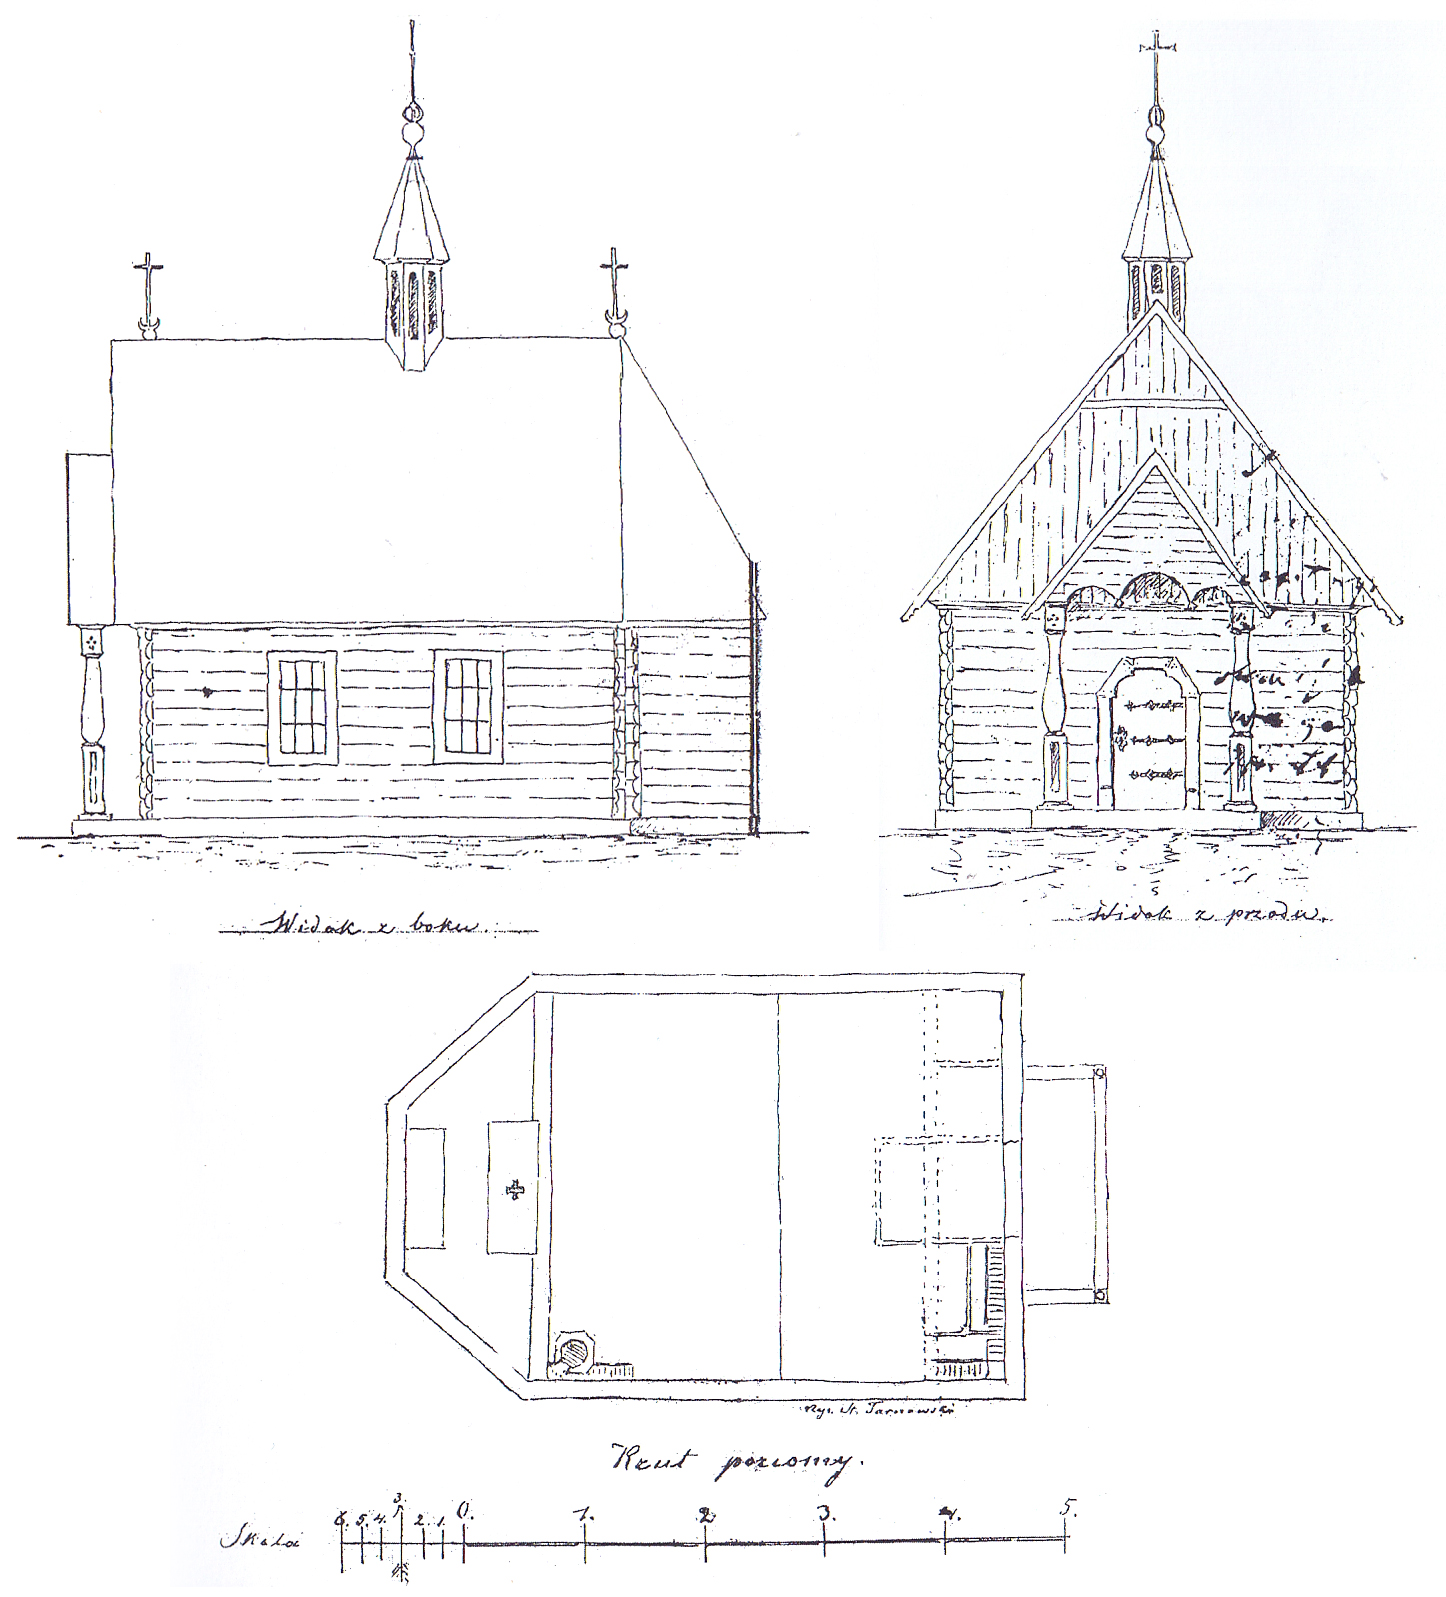 Widok z boku.
Widok z przodu.
Rys. St. Tarnowski
Rzut poziomy.
Skala 6. 5. 4. 3. 2. 1. 0. 1. 2. 3. 4. 5.